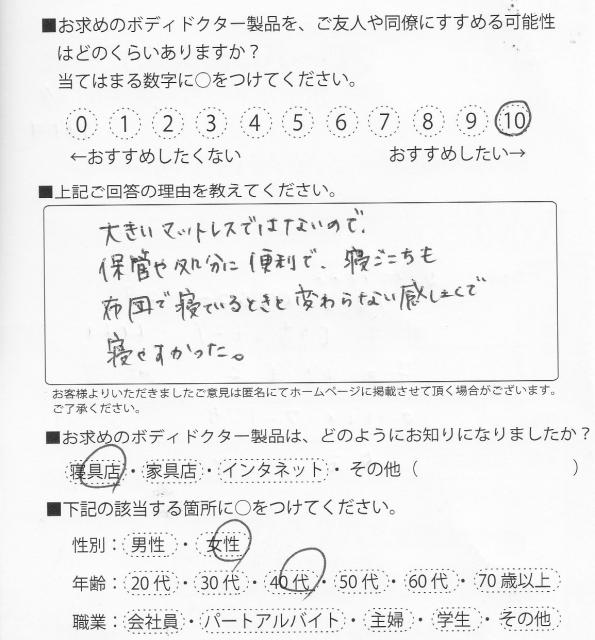 ■お求めのボディドクター製品を、ご友人や同僚にすすめる可能性
はどのくらいありますか？
当てはまる数字に○をつけてください。
0 1 2 3 4 5 6 7 8 9 10
←おすすめしたくない おすすめしたい→
■上記ご回答の理由を教えてください。
大きいマットレスではないので、
保管や処分に便利で、寝ごこちも
布団で寝ているときと変わらない感じで
寝やすかった。
お客様よりいただきましたご意見は匿名にてホームページに掲載させて頂く場合がございます。
ご了承ください。
■お求めのボディドクター製品は、どのようにお知りになりましたか？
寝具店・家具店・インタネット・その他（ ）
■下記の該当する箇所に○をつけてください。
性別：男性・女性
年齢：20代・30代・40代・50代・60代・70歳以上
職業：会社員・パートアルバイト・主婦・学生・その他